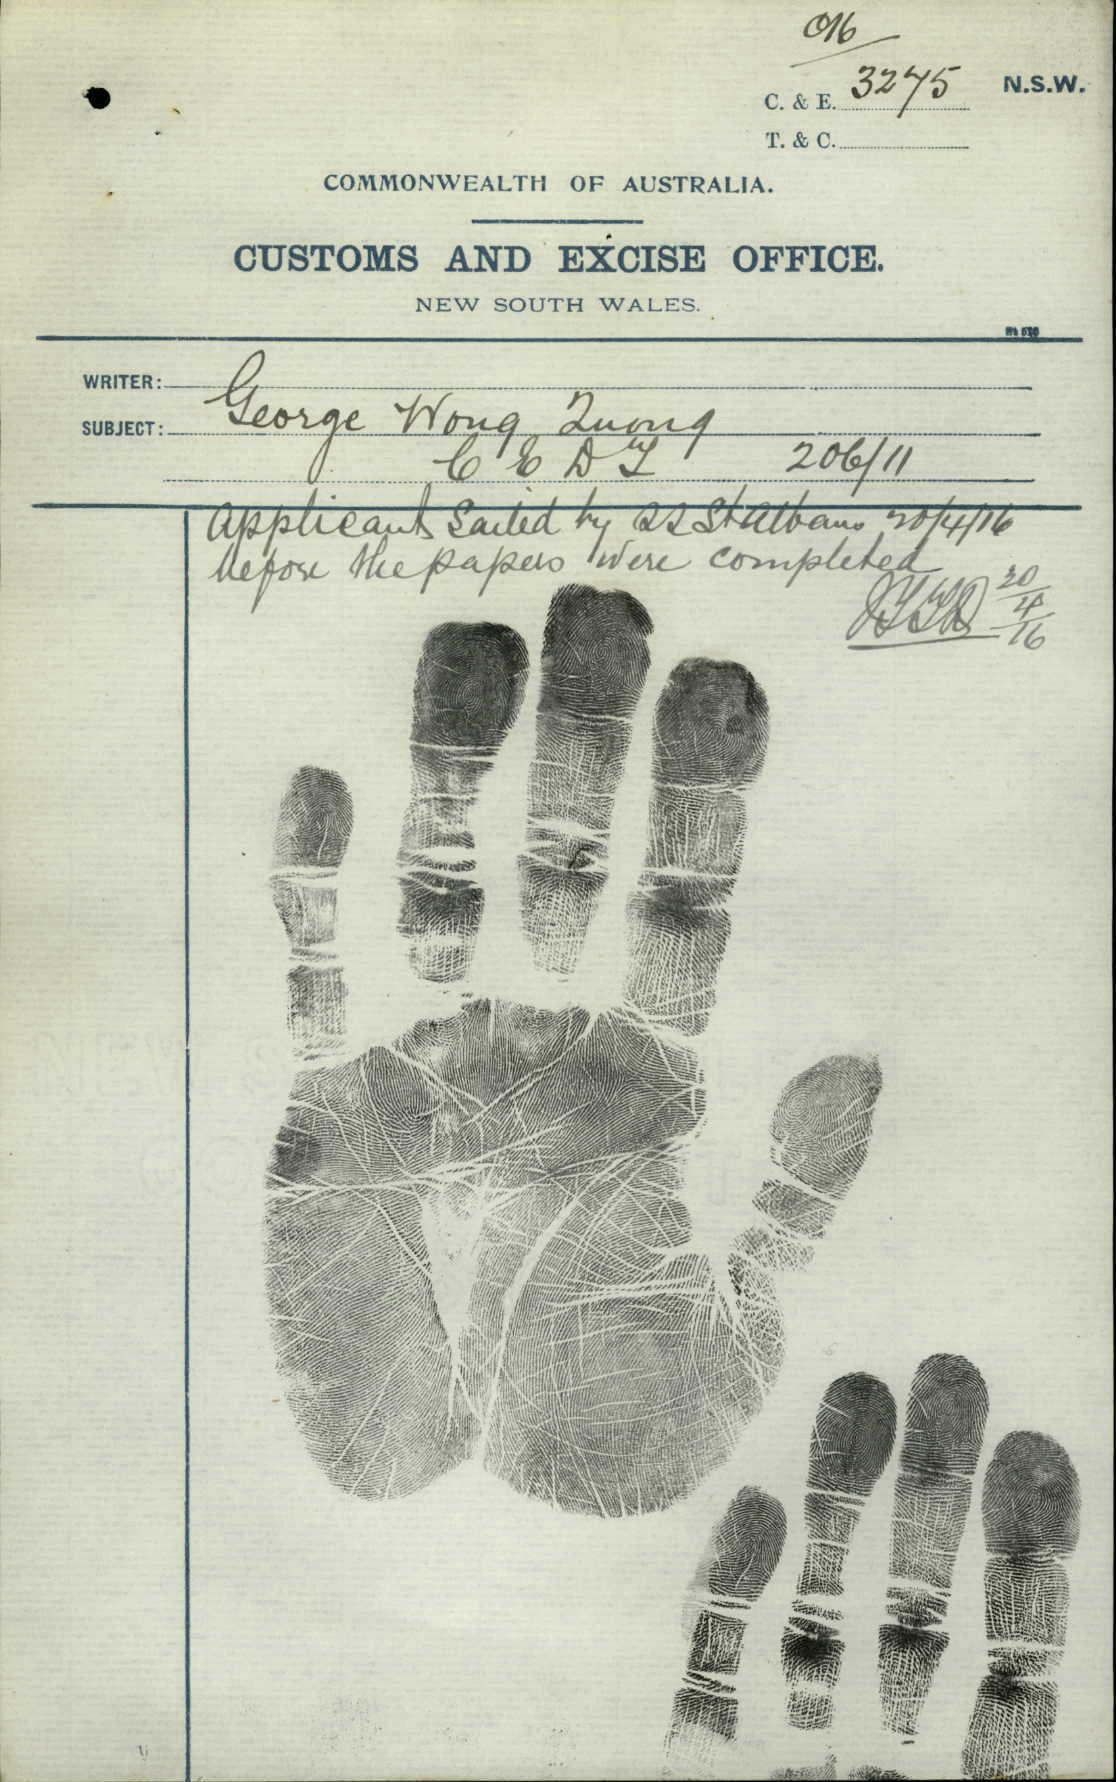 016
C. & E. 3275 N.S.W.
T. & C.
COMMONWEALTH OF AUSTRALIA.
CUSTOMS AND EXCISE OFFICE.
NEW SOUTH WALES.
WRITER:
SUBJECT: George Wong Quong
C E D T 206/11
Applicant Sailed by SS St Albans 20/4/16
before the papers were completed
20/4/16